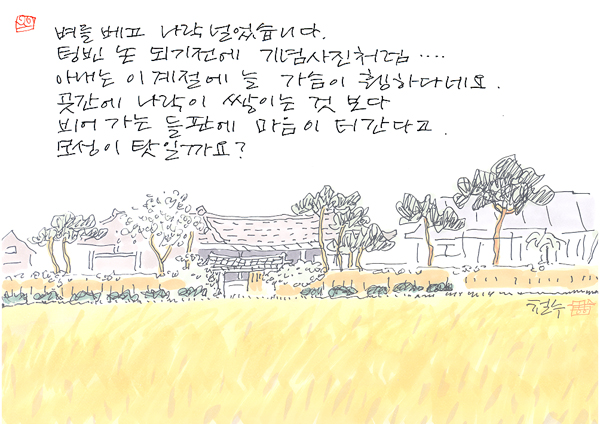 벼를 베고 나락 널었습니다.
텅빈 논 되기전에 기념사진처럼····
아내는 이 계절에 늘 가슴이 휑하다네요.
곳간에 나락이 쌓이는 것 보다
비어 가는 들판에 마음이 더 간다고.
모성이 탓일까요?
철수